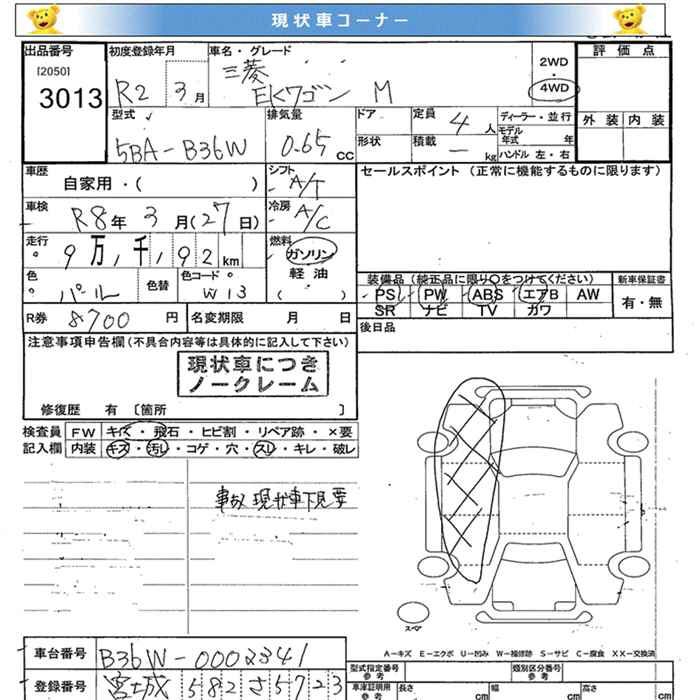 現状車コーナー
出品番号 初度登録年月 車名・グレード 評価点
[2050]
3013 R2 3月 三菱 EKワゴン M 2WD 4WD
型式 排気量 ドア 定員 4人 ディーラー・並行 外装 内装
5BA-B36W 0.65 CC 形状 積載 ー kg モデル年式 年
ハンドル 左・右
車歴 シフト セールスポイント (正常に機能するものに限ります)
自家用・( ) A/T
車検 R8年 3月(27日) 冷房 A/C
走行 9万,千,92km 燃料 ガソリン 軽油 ( )
色 パール 色替 色コード W13
装備品 (純正品に限り○をつけてください) 新車保証書
PS PW ABS エアB AW 有・無
SR ナビ TV カワ
R券 8700 円 名変期限 月 日 後日品
注意事項申告欄 (不具合内容等は具体的に記入して下さい)
現状車につき
ノークレーム
修復歴 有 〔箇所 〕
検査員 FW キズ・飛石・ヒビ割・リペア跡・×要
記入欄 内装 キズ・汚し・コゲ・穴・スレ・キレ・破レ
事故現状車下見要
スペア
A-キズ E-エクボ U-凹み W-補修跡 S-サビ C-腐食 XX-交換済
車台番号 B36W-0002341 型式指定番号 類別区分番号
登録番号 宮城 582 さ 5723 車庫証明用参考 長さ cm 幅 cm 高さ cm